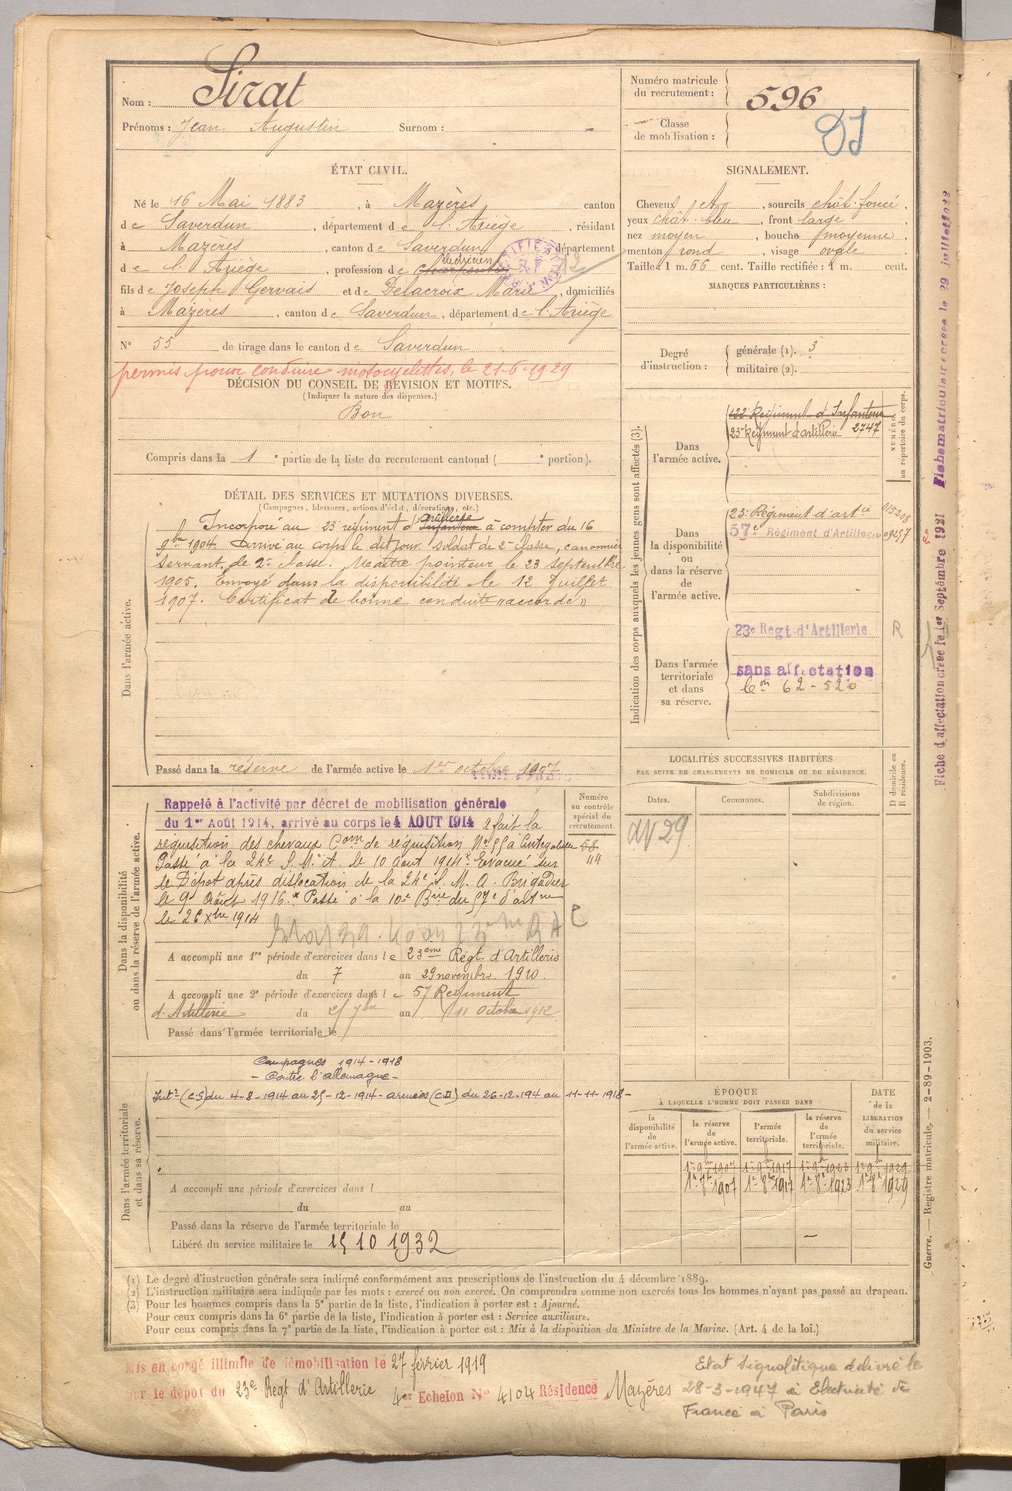 Nom : Sirat
Prénoms : Jean Augustin Surnom : -
Numéro matricule du recrutement : 596
Classe de mobilisation :
ÉTAT CIVIL.
Né le 16 Mai 1883, à Mazères canton
de Saverdun, département de l'Ariège, résidant
à Mazères, canton de Saverdun, département
de l'Ariège, profession de électricien
fils de Joseph Gervais et de Delacroix Marie, domiciliés
à Mazères, canton de Saverdun, département de l'Ariège
N° 55 de tirage dans le canton de Saverdun
permis pour conduire motocyclettes, le 21-6-1929
SIGNALEMENT.
Cheveux, sourcils chât. foncé,
yeux chât. bleu, front large
nez moyen, bouche moyenne,
menton rond, visage ovale.
Taille : 1 m. 66 cent. Taille rectifiée : 1 m. cent.
MARQUES PARTICULIÈRES :
Degré d'instruction : générale (1). 3
militaire (2).
DÉCISION DU CONSEIL DE RÉVISION ET MOTIFS.
(Indiquer la nature des dispenses.)
Bon
Compris dans la 1e partie de la liste du recrutement cantonal ( e portion).
DÉTAIL DES SERVICES ET MUTATIONS DIVERSES.
(Campagnes, blessures, actions d'éclat, décorations, etc.)
Dans l'armée active.
Incorporé au 23 régiment d'Infanterie artillerie à compter du 16
9bre 1904. Arrivé au corps le dit jour. soldat de 2e classe, canonnier
servant de 2e classe. Maître pointeur le 23 septembre
1905. Envoyé dans la disponibilité le 12 Juillet
1907. Certificat de bonne conduite "accordé"
Passé dans la réserve de l'armée active le 1er octobre 1907
Indication des corps auxquels les jeunes gens sont affectés (3).
NUMÉRO au répertoire du corps.
Dans l'armée active.
122 Régiment d'Infanterie
23e Régiment d'artillerie 2747
Dans la disponibilité ou dans la réserve de l'armée active.
23e Régiment d'artie
57e Régiment d'Artillerie
Dans l'armée territoriale et dans sa réserve.
23e Regt d'Artillerie R
sans affectation
Con 62-520
LOCALITÉS SUCCESSIVES HABITÉES
PAR SUITE DE CHANGEMENTS DE DOMICILE OU DE RÉSIDENCE.
Dates. Communes. Subdivisions de région. D domicile ou R résidence.
Dans la disponibilité ou dans la réserve de l'armée active.
Numéro au contrôle spécial du recrutement.
Rappelé à l'activité par décret de mobilisation générale
du 1er Août 1914, arrivé au corps le 4 AOUT 1914 a fait la
réquisition des chevaux Com de réquisition
Passé à la 24e S.M.A. le 10 Août 1914. Evacué sur
le Dépôt après dislocation de la 24e S.M.A. Brigadier
le 9 Août 1916. Passé à la 10e Bie du 57e d'artie
le 26 Xbre 1914
A accompli une 1re période d'exercices dans le 23eme Régt. d'Artillerie
du 7 au 29 novembre 1910.
A accompli une 2e période d'exercices dans le 57 Regiment
d'Artillerie du 7bre au 11 octobre 1912
Passé dans l'armée territoriale le
Dans l'armée territoriale et dans sa réserve.
Campagnes 1914-1918
- Contre l'allemagne -
Intr (CS) du 4-8-1914 au 25-12-1914 - armées (CD) du 26-12-194 au 11-11-1918 -
A accompli une période d'exercices dans l
du au
Passé dans la réserve de l'armée territoriale le
Libéré du service militaire le 15 10 1932
ÉPOQUE
À LAQUELLE L'HOMME DOIT PASSER DANS
la disponibilité de l'armée active. la réserve de l'armée active. l'armée territoriale. la réserve de l'armée territoriale.
DATE de la LIBÉRATION du service militaire.
1er 9bre 1907 1er 9bre 1917 1er 9bre 1923 1er 9bre 1929
1er 8bre 1907 1er 8bre 1917 1er 8bre 1923 1er 8bre 1929
(1) Le degré d'instruction générale sera indiqué conformément aux prescriptions de l'instruction du 4 décembre 1889.
(2) L'instruction militaire sera indiquée par les mots : exercé ou non exercé. On comprendra comme non exercés tous les hommes n'ayant pas passé au drapeau.
(3) Pour les hommes compris dans la 5e partie de la liste, l'indication à porter est : Ajourné.
Pour ceux compris dans la 6e partie de la liste, l'indication à porter est : Service auxiliaire.
Pour ceux compris dans la 7e partie de la liste, l'indication à porter est : Mis à la disposition du Ministre de la Marine. (Art. 4 de la loi.)
Mis en congé illimité de démobilisation le 27 février 1919
par le dépôt du 23e Regt d'Artillerie 4er Echelon N° 4104 Résidence Mazères
Etat Signalétique délivré le
28-3-1947 à Electricité de
France à Paris
Guerre. — Registre matricule. — 2-89-1903.
Fiche d'affectation créée le 1er Septembre 1921
Fiche matriculaire créée le 29 juillet